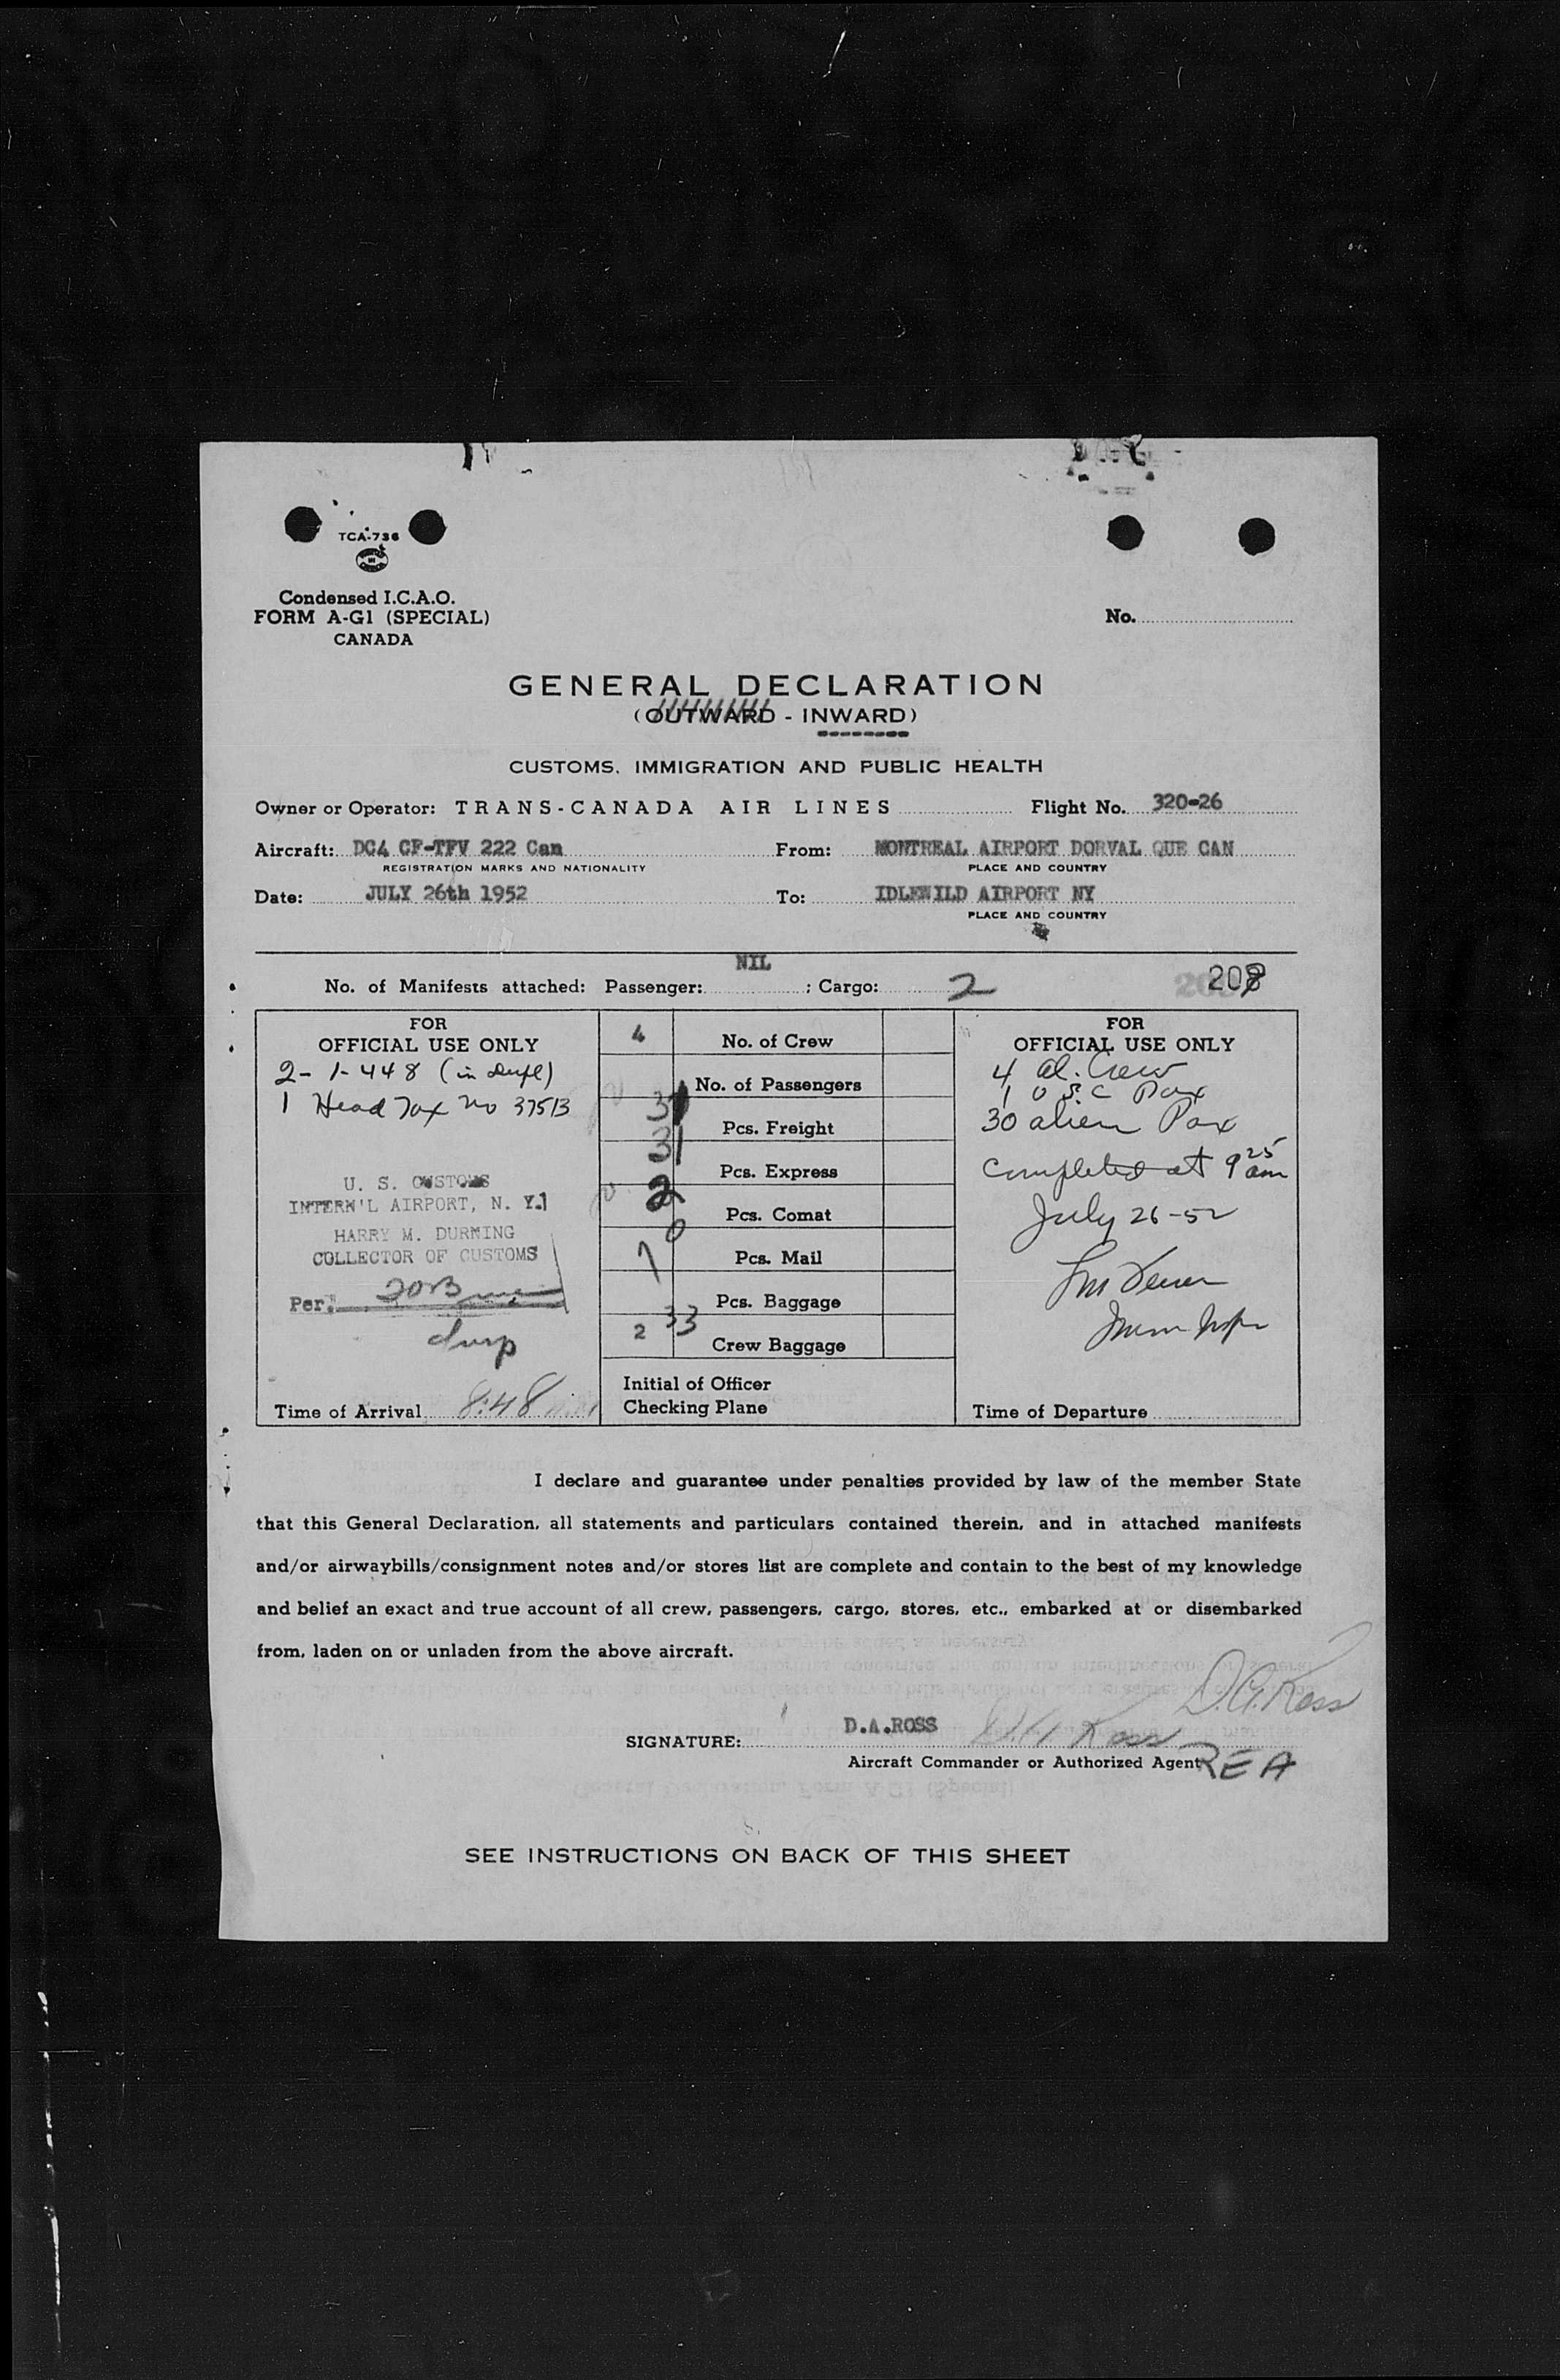 TCA-736
Condensed I.C.A.O.
FORM A-G1 (SPECIAL)
CANADA
No.
GENERAL DECLARATION
(OUTWARD - INWARD)
CUSTOMS, IMMIGRATION AND PUBLIC HEALTH
Owner or Operator: TRANS-CANADA AIR LINES Flight No. 320-26
Aircraft: DC4 CF-TFV 222 Can From: MONTREAL AIRPORT DORVAL QUE CAN
REGISTRATION MARKS AND NATIONALITY PLACE AND COUNTRY
Date: JULY 26th 1952 To: IDLEWILD AIRPORT NY
PLACE AND COUNTRY
NIL
No. of Manifests attached: Passenger: ; Cargo: 2
FOR
OFFICIAL USE ONLY
2- 1-448 (in dupl)
1 Head Tax No 37513
U. S. CUSTOMS
INTERN'L AIRPORT, N. Y.
HARRY M. DURNING
COLLECTOR OF CUSTOMS
Per:
Time of Arrival 8:48
4 No. of Crew
No. of Passengers
31 Pcs. Freight
31 Pcs. Express
2 Pcs. Comat
0 Pcs. Mail
1 Pcs. Baggage
2 33 Crew Baggage
Initial of Officer
Checking Plane
FOR
OFFICIAL USE ONLY
4 al. Crew
1 U S C Pax
30 alien Pax
Completed at 9 25 am
July 26-52
Time of Departure
I declare and guarantee under penalties provided by law of the member State
that this General Declaration, all statements and particulars contained therein, and in attached manifests
and/or airwaybills/consignment notes and/or stores list are complete and contain to the best of my knowledge
and belief an exact and true account of all crew, passengers, cargo, stores, etc., embarked at or disembarked
from, laden on or unladen from the above aircraft.
D.A. Ross
SIGNATURE: D.A.ROSS D.A. Ross
Aircraft Commander or Authorized Agent REA
SEE INSTRUCTIONS ON BACK OF THIS SHEET